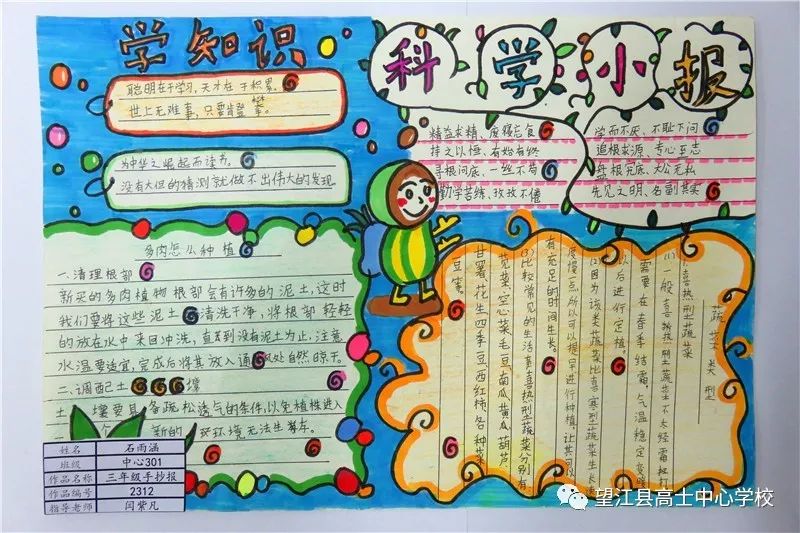 学知识
聪明在于学习,天才在于积累。
世上无难事,只要肯登攀。
为中华之崛起而读书。
没有大但的猜测就做不出伟大的发现
科学小报
精益求精、废寝忘食
持之以恒、有始有终
寻根问底、一丝不苟
勤学苦练、孜孜不倦
学而不厌、不耻下问
追根求源、专心至志
盘根究底、大公无私
先见之明、名副其实
多肉怎么种植
一.清理根部
新买的多肉植物根部会有许多的泥土,这时
我们要将这些泥土清洗干净,将根部轻轻
的放在水中来回冲洗,直到没有泥土为止,注意
水温要适宜,完成后将其放入通风处自然晾干。
二.调配土壤
土壤要具备疏松透气的条件,以免植株进入
个新的环境无法生存。
蔬菜类型
喜热型蔬菜
(1)一般喜热型蔬菜不太经霜打
需要在春季结霜,气温稳定
以后进行定植
(2)因为该类蔬菜比喜寒型蔬菜生长
度慢一点所以可以提早进行种植,让其
有充足的时间生长。
(3)比较常见的生活喜热型蔬菜分别有
苋菜空心菜毛豆南瓜黄瓜葫芦
甘薯花生四季豆西红柿各种菜
豆等。
姓名 石雨涵
班级 中心301
作品名称 三年级手抄报
作品编号 2312
指导老师 闫紫凡
望江县高士中心学校